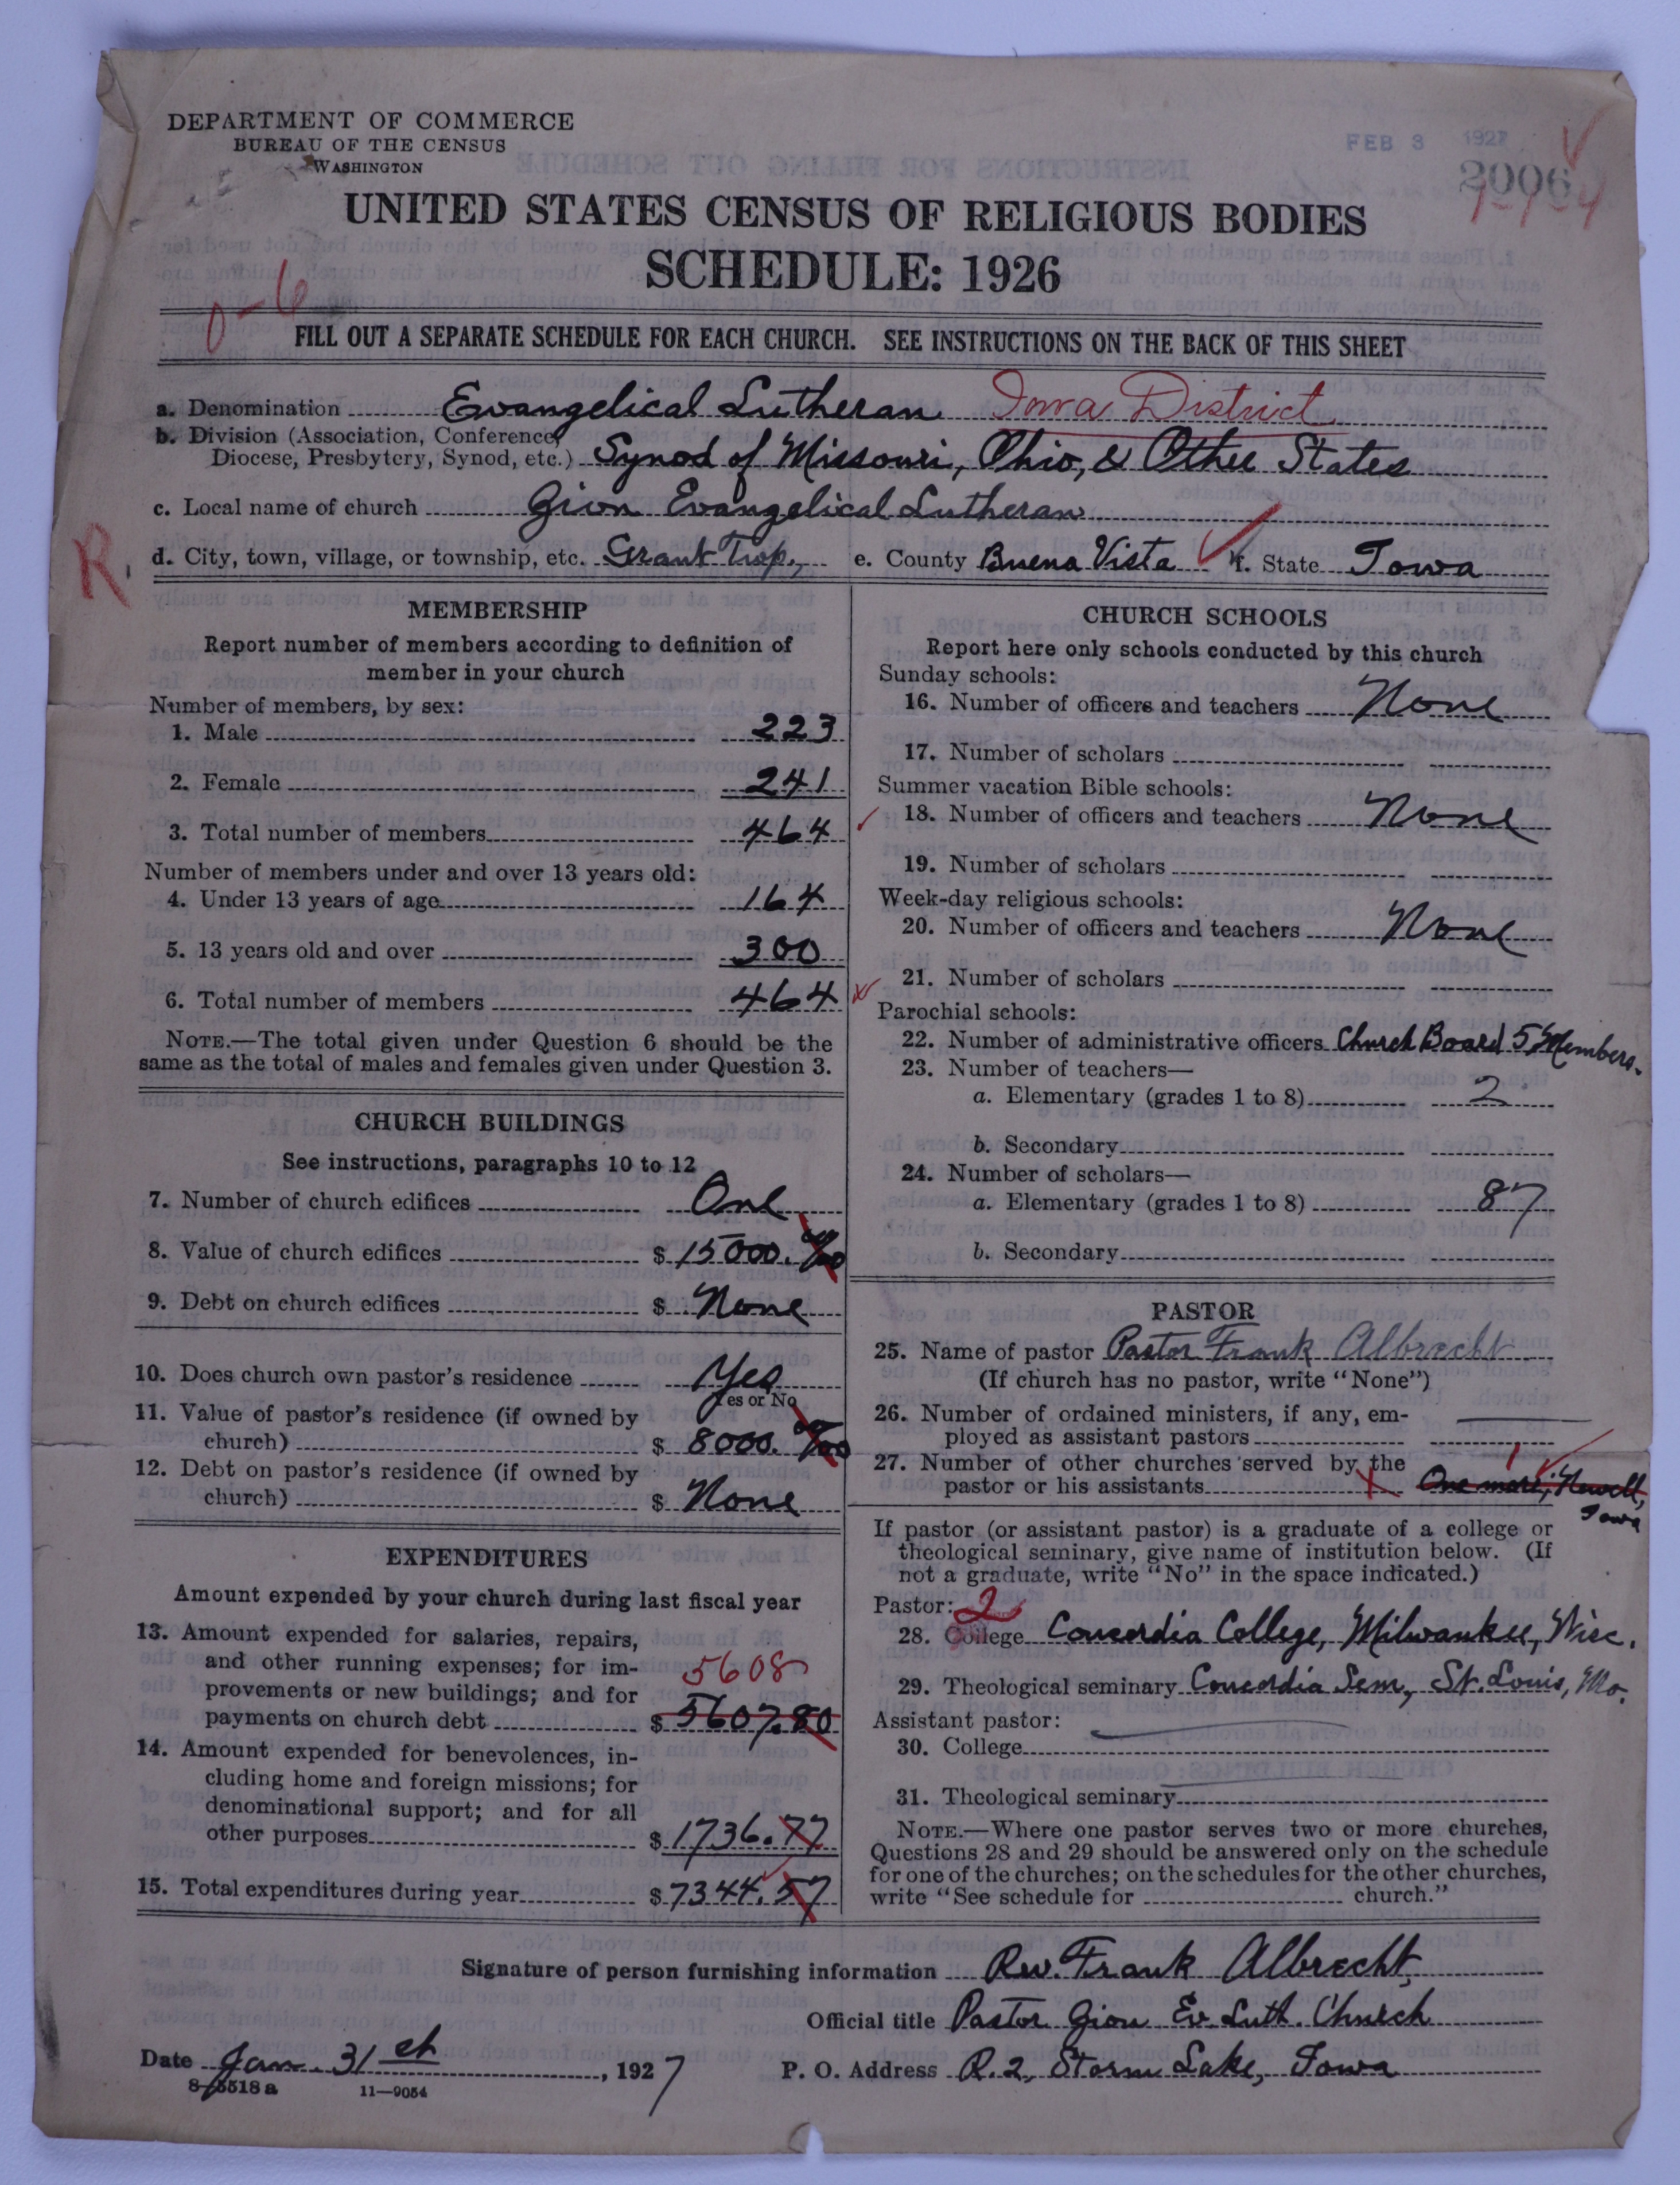 DEPARTMENT OF COMMERCE
BUREAU OF THE CENSUS
WASHINGTON
FEB 3 1927
2006
UNITED STATES CENSUS OF RELIGIOUS BODIES
SCHEDULE: 1926
0-6
FILL OUT A SEPARATE SCHEDULE FOR EACH CHURCH. SEE INSTRUCTIONS ON THE BACK OF THIS SHEET
a. Denomination Evangelical Lutheran Iowa District
b. Division (Association, Conference,
Diocese, Presbytery, Synod, etc.) Synod of Missouri, Ohio, & Other States
c. Local name of church Zion Evangelical Lutheran
R.
d. City, town, village, or township, etc. Grant Twp., e. County Buena Vista f. State Iowa
MEMBERSHIP
Report number of members according to definition of
member in your church
Number of members, by sex:
1. Male 223
2. Female 241
3. Total number of members 464
Number of members under and over 13 years old:
4. Under 13 years of age 164
5. 13 years old and over 300
6. Total number of members 464
NOTE.—The total given under Question 6 should be the
same as the total of males and females given under Question 3.
CHURCH BUILDINGS
See instructions, paragraphs 10 to 12
7. Number of church edifices One
8. Value of church edifices $ 15000.
9. Debt on church edifices $ None
10. Does church own pastor's residence Yes
Yes or No
11. Value of pastor's residence (if owned by
church) $ 8000.
12. Debt on pastor's residence (if owned by
church) $ None
EXPENDITURES
Amount expended by your church during last fiscal year
13. Amount expended for salaries, repairs,
and other running expenses; for im-
provements or new buildings; and for 5608
payments on church debt $ 5607.80
14. Amount expended for benevolences, in-
cluding home and foreign missions; for
denominational support; and for all
other purposes $ 1736.77
15. Total expenditures during year $ 7344.57
CHURCH SCHOOLS
Report here only schools conducted by this church
Sunday schools:
16. Number of officers and teachers None
17. Number of scholars
Summer vacation Bible schools:
18. Number of officers and teachers None
19. Number of scholars
Week-day religious schools:
20. Number of officers and teachers None
21. Number of scholars
Parochial schools:
22. Number of administrative officers Church Board 5 Members.
23. Number of teachers—
a. Elementary (grades 1 to 8) 2
b. Secondary
24. Number of scholars—
a. Elementary (grades 1 to 8) 87
b. Secondary
PASTOR
25. Name of pastor Pastor Frank Albrecht
(If church has no pastor, write "None")
26. Number of ordained ministers, if any, em-
ployed as assistant pastors
27. Number of other churches served by the 1
pastor or his assistants One more, Newell,
Iowa
If pastor (or assistant pastor) is a graduate of a college or
theological seminary, give name of institution below. (If
not a graduate, write "No" in the space indicated.)
Pastor: 2
28. College Concordia College, Milwaukee, Wisc.
29. Theological seminary Concordia Sem., St. Louis, Mo.
Assistant pastor:
30. College
31. Theological seminary
NOTE.—Where one pastor serves two or more churches,
Questions 28 and 29 should be answered only on the schedule
for one of the churches; on the schedules for the other churches,
write "See schedule for church."
Signature of person furnishing information Rev. Frank Albrecht,
Official title Pastor Zion Ev. Luth. Church
Date Jan. 31st, 1927 P. O. Address R.2, Storm Lake, Iowa
8-5518a 11-9054